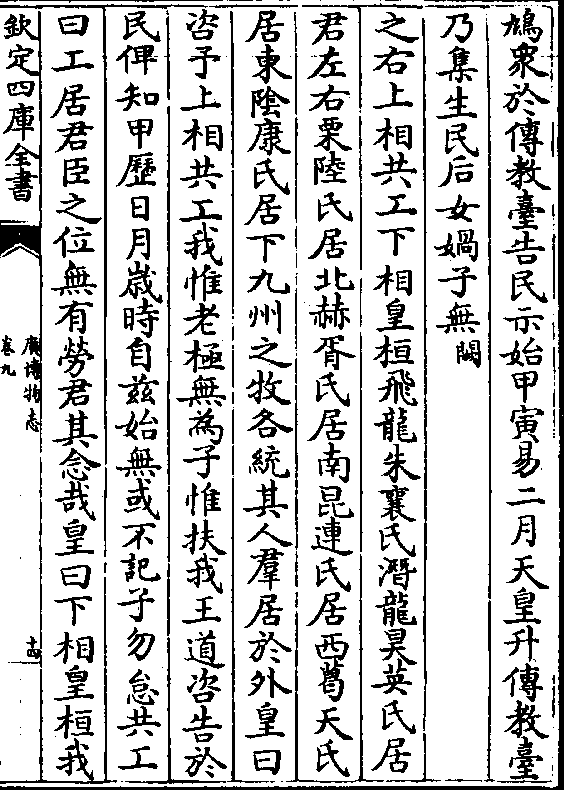 鳩衆於傳教臺告民示始甲寅易二月天皇升傳教臺
乃集生民后女媧子無闕
之右上相共工下相皇桓飛龍朱襄氏潛龍昊英氏居
君左右栗陸氏居北赫胥氏居南昆連氏居西葛天氏
居東陰康氏居下九州之牧各統其人羣居於外皇曰
咨予上相共工我惟老極無為子惟扶我王道咨告於
民俾知甲歷日月歲時自兹始無或不記子勿怠共工
曰工居君臣之位無有勞君其念哉皇曰下相皇桓我
欽定四庫全書
廣博物志
卷九
十四